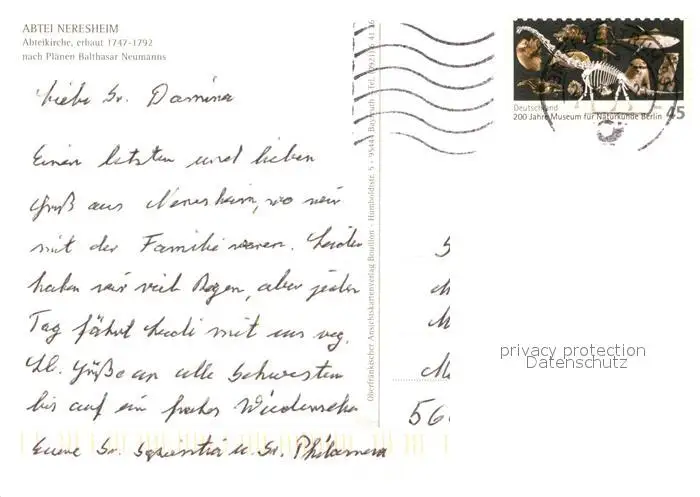 ABTEI NERESHEIM
Abteikirche, erbaut 1747-1792
nach Plänen Balthasar Neumanns
Liebe Sr. Damina
Einen letzten und lieben
Gruß aus Neresheim, wo wir
mit der Familie waren. Leider
haben wir viel Regen, aber jeden
Tag fährt Heidi mit uns weg.
Lb. Grüße an alle Schwestern
bis auf ein frohes Wiedersehen
Eure Sr. u. Sr. Philomena
Oberfränkischer Ansichtskartenverlag Bouillon · Humboldtstr. 5 · 95444 Bayreuth · Tel. 41 26
Deutschland
200 Jahre Museum für Naturkunde Berlin
45
56
privacy protection
Datenschutz